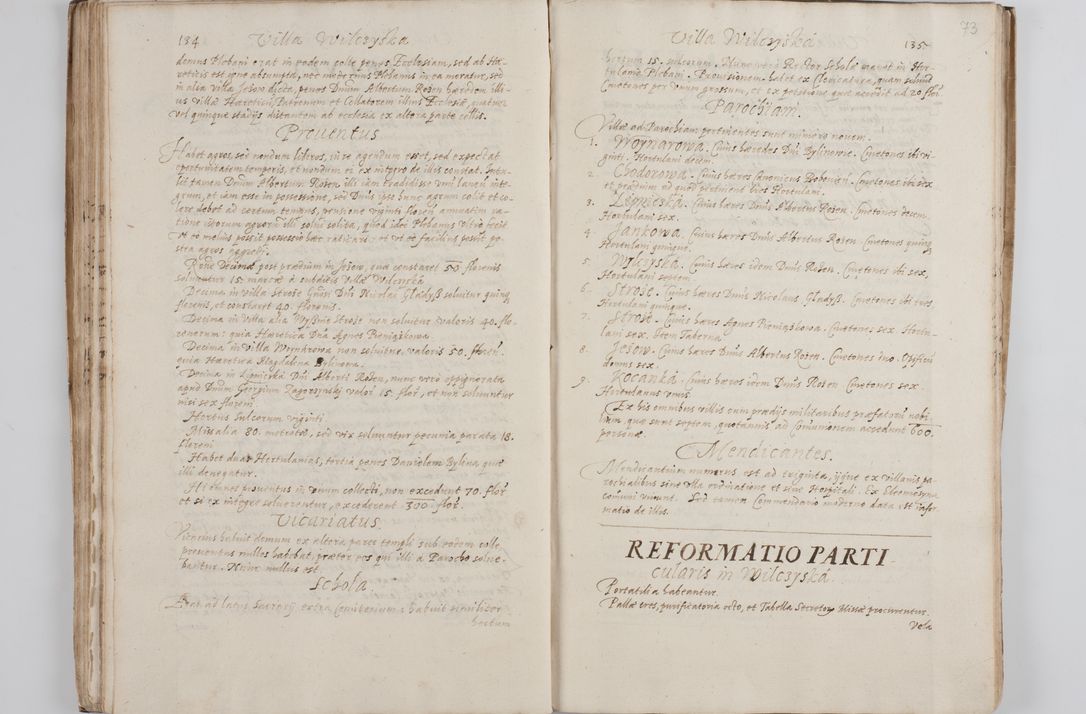 134 Villa Wilczyska
domus Plebani erat in eodem colle penes Ecclesiam, sed ab Hæ-
reticis est igne absumpta, nec modernus Plebanus in ea moratur, sed
in alia Villa Jesow dicta, penes Dnum Albertum Rosen hæredem illi-
us villæ Hæreticũ, Patronum et Collatorem illius Ecclesiæ, quatuor
vel quinque stadijs distantem ab ecclesia ex altera parte collis.
Prouentus
Habet agros, sed nondum liberos, iure agendum esset, sed expectat
oportunitatem temporis, et nondum ei ex integro de illis constat.
tamen Dnum Albertum Rosen illi iam tradidisse vnũ laneũ inte-
grum, et iam esse in possessione, sed Dnus ipse hunc agrum colit et co-
lere debet ad certum tempus, pensione viginti floren annuatim ra-
tione istorum agrorũ illi solui solita, quod idem Plebanus
vt eo melius possit possessio hæc ratificari et vt eo facilius possit po-
stea agros
Decima post prædium in Jesow, qua constaret 50 florenis
soluuntur 15 marcæ à subditis Villæ Wilczyska
Decima in villa Stroze Gnosi Dni Nicolai Gładyß soluitur quinq
florenis, et constaret 40. florenis.
Decima in Villa alia Wyßnie Stroze non soluitur valoris 40. flo-
renorum: quia Hæretica Dna Agnes Pieniążkowa.
Decima in Villa Woynarowa non soluitur, valoris 50. floren.
quia Hæretica Magdalena Bylinowa.
Decima in Lipniczka Dni Alberti Rosen, nunc vero oppignorata
apud Dnum Georgium Zagorzynskj valor 15. flor, et non soluuntur
nisi sex floreni.
Hortus Sulcorum viginti
Missalia 80. metretæ, sed vix soluuntur pecunia parata 18.
floreni.
Habet duas Hortulanias, tertia penes Danielem Bylina quæ
illi denegatur.
Hi th prouentus in vnum collecti, non excedunt 70. flor
et si ex integro soluerentur, excederent 300 flor.
Vicariatus
Vicarius habuit domum ex altera parte templi sub eodem colle
prouentus nullos habebat, præter eos qui illi à Parocho solue-
bantur. Nunc nullus est
Schola.
Erat ad latus Sacrarij, extra Cemiterium: habuit similiter
hortum
Villa Wilczyská 135
73
hortum 15. sulcorum. Nunc vero Rector Scholæ manet in Hor-
tulania Plebani. Prouisionem habet ex Clericatura, quam soluũt
Cmetones per vnum grossum, et ex petitione quæ accedit ad 20. flor.
Parochiani.
Villæ ad Parochiam pertinentes sunt numero nouem.
1. Woynarowa. Cuius hæredes Dni Bylinowie. Cmetones ibi vi-
ginti. Hortulani decem.
2. Chodorowa. Cuius hæres Canonicus Bobouien. Cmetones ibi sex
et prædium ad quod pertinent tres Hortulani.
3. Lipnicska. Cuius hæres Dnus Albertus Rosen. Cmetones decem,
Hortulani sex.
4. Jankowa. Cuius hæres Dnus Albertus Rosen. Cmetones quinq
Hortulani quinque.
5. Wilczyska. Cuius hæres idem Dnus Rosen. Cmetones ibi sex,
Hortulani septem.
6. Stroże. Cuius hæres Dnus Nicolaus Gładyß. Cmetones ibi tres,
Hortulani quinque.
7. Stroże. Cuius hæres Agnes Pieniążkowa. Cmetones sex Hortu-
lani sex. Item Taberna
8. Jesow. Cuius hæres Dnus Albertus Rosen. Cmetones duo. Opificũ
domus sex.
9. Kocanká. Cuius hæres idem Dnus Rosen. Cmetones sex
Hortulanus vnus.
Ex his omnibus villis cum prædijs militaribus præfatorũ nobi-
lium, quæ sunt septem, quotannis ad Comunionem accedunt 600.
personæ.
Mendicantes.
Mendicantium numerus est ad triginta, ijque ex villanis pa-
rochialibus sine vlla ordinatione et sine Hospitali. Ex Eleemosyna
comuni viuunt. Sed tamen Commendario moderno data est infor-
matio de illis.
REFORMATIO PARTI
cularis in Wilczyská.
Portatilia habeantur.
Pallæ tres, purificatoria octo, et Tabella Secretorũ Missæ procurentur.
Vela